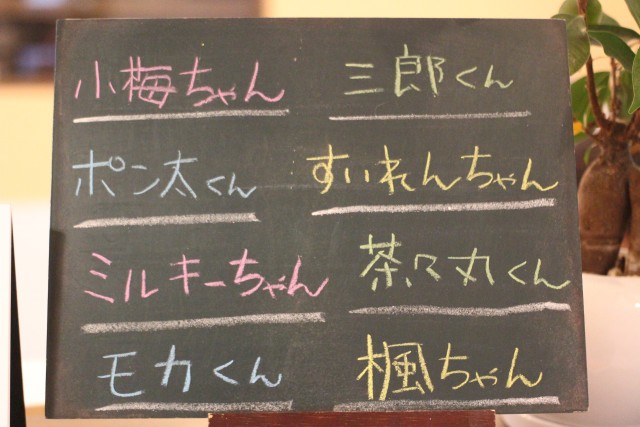 小梅ちゃん
三郎くん
ポン太くん
すいれんちゃん
ミルキーちゃん
茶々丸くん
モカくん
楓ちゃん